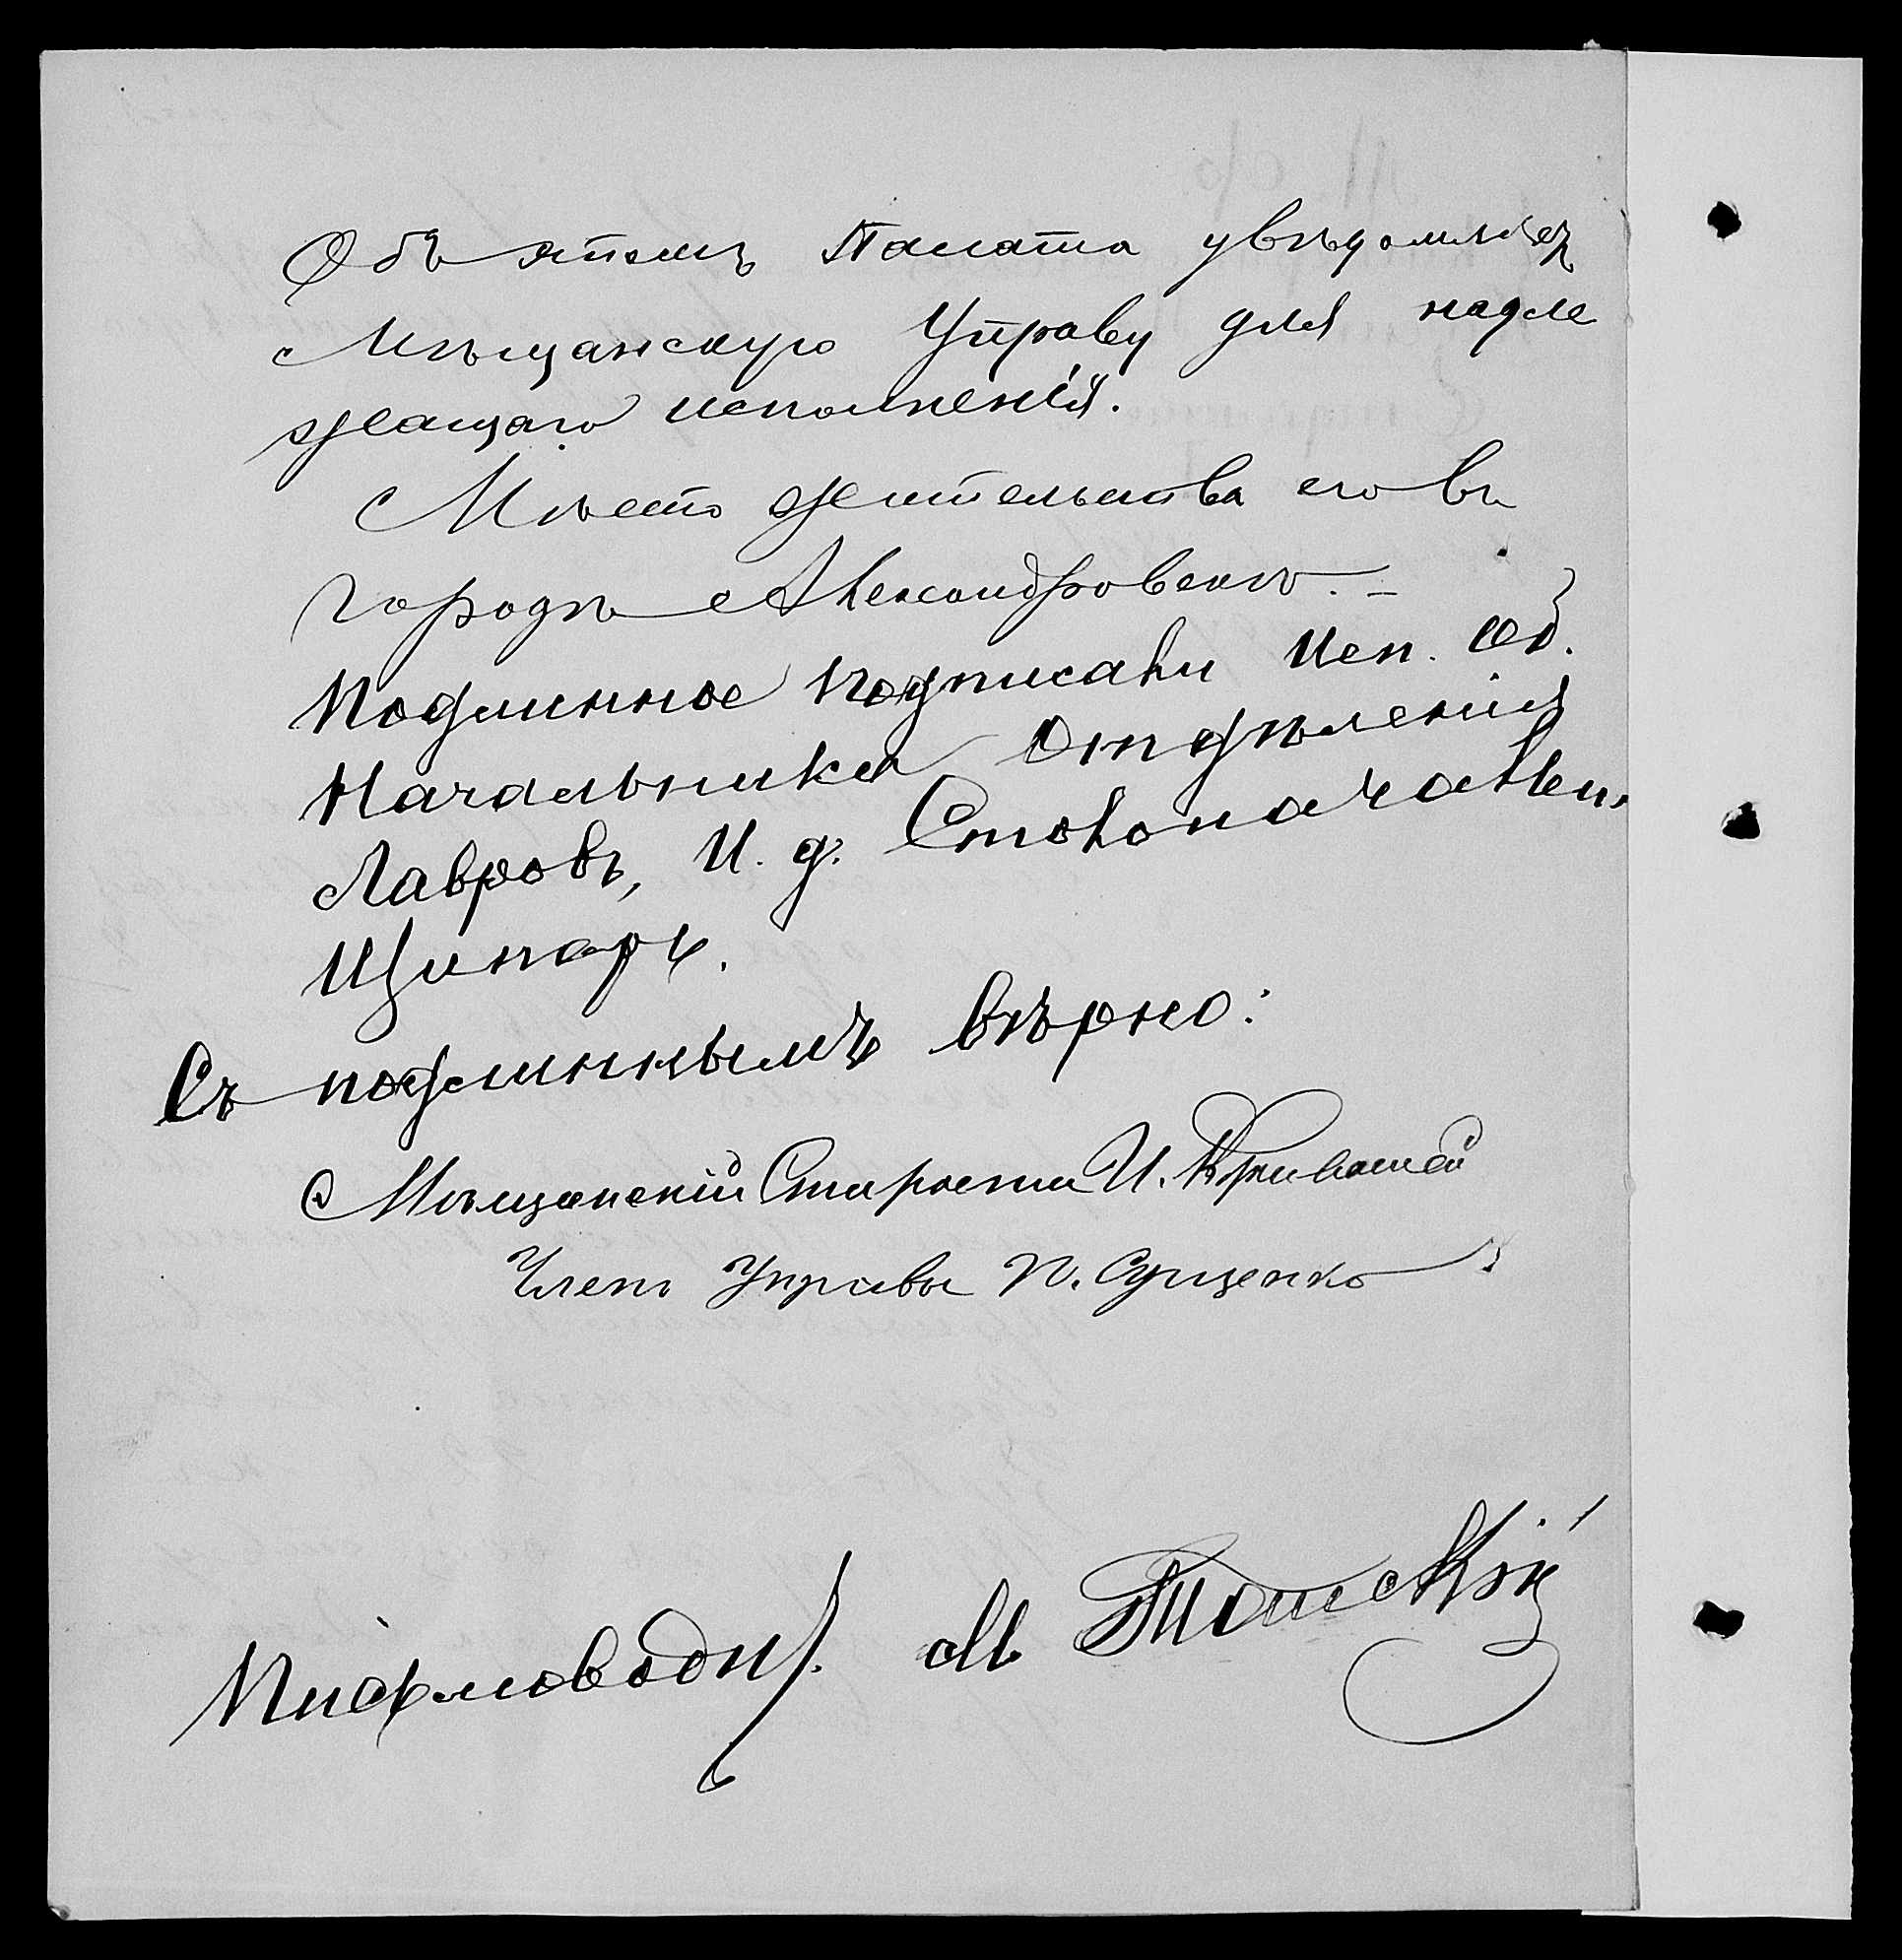 Объ этомъ Палата увѣдомляетъ
Мѣщанскую Управу для надле
жащаго исполненія.
Мѣсто жительства его въ
городѣ Александровскѣ. –
Подлинное подписали Исп. Об.
Начальника Отдѣленія
Лавровъ, И. д. Столоначальн.
Щипарь.
Съ подлиннымъ вѣрно:
Мѣщанскій Староста И.
Членъ Управы П. Сущенко
Письмоводит. М Томскій